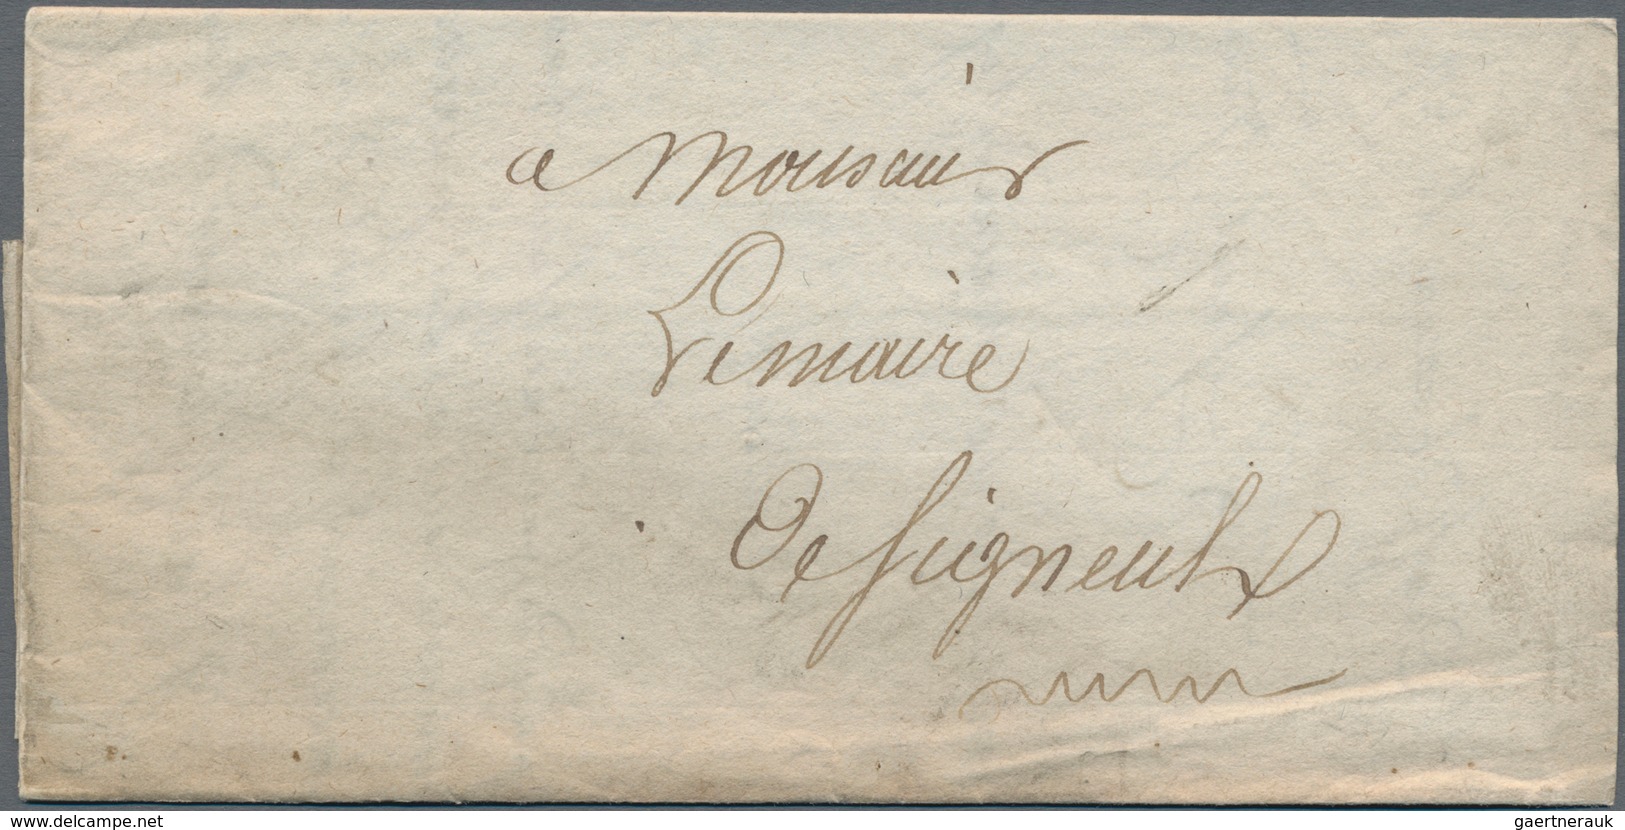 a Monsieur
Lemaire
De Signeulx
www.delcampe.net
gaertnerauk